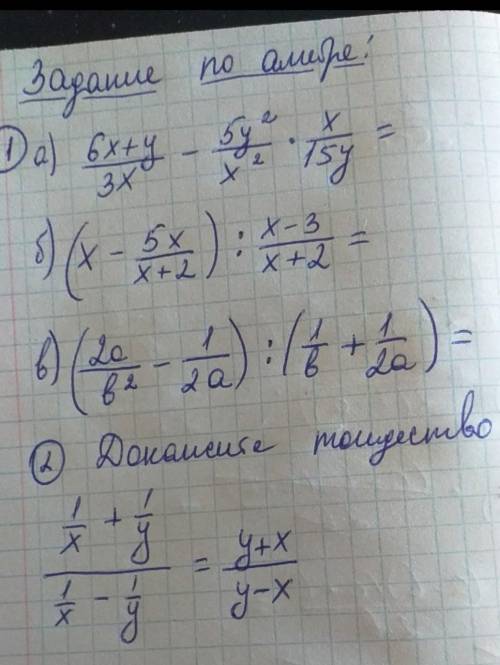 Задание по алгебре!
1 а) (6x+y)/(3x) − (5y²)/(x²) · x/(15y) =
б) (x − 5x/(x+2)) : (x−3)/(x+2) =
в) (2a/в² − 1/(2a)) : (1/в + 1/(2a)) =
2 Докажите тождество
(1/x + 1/y)/(1/x − 1/y) = (y+x)/(y−x)